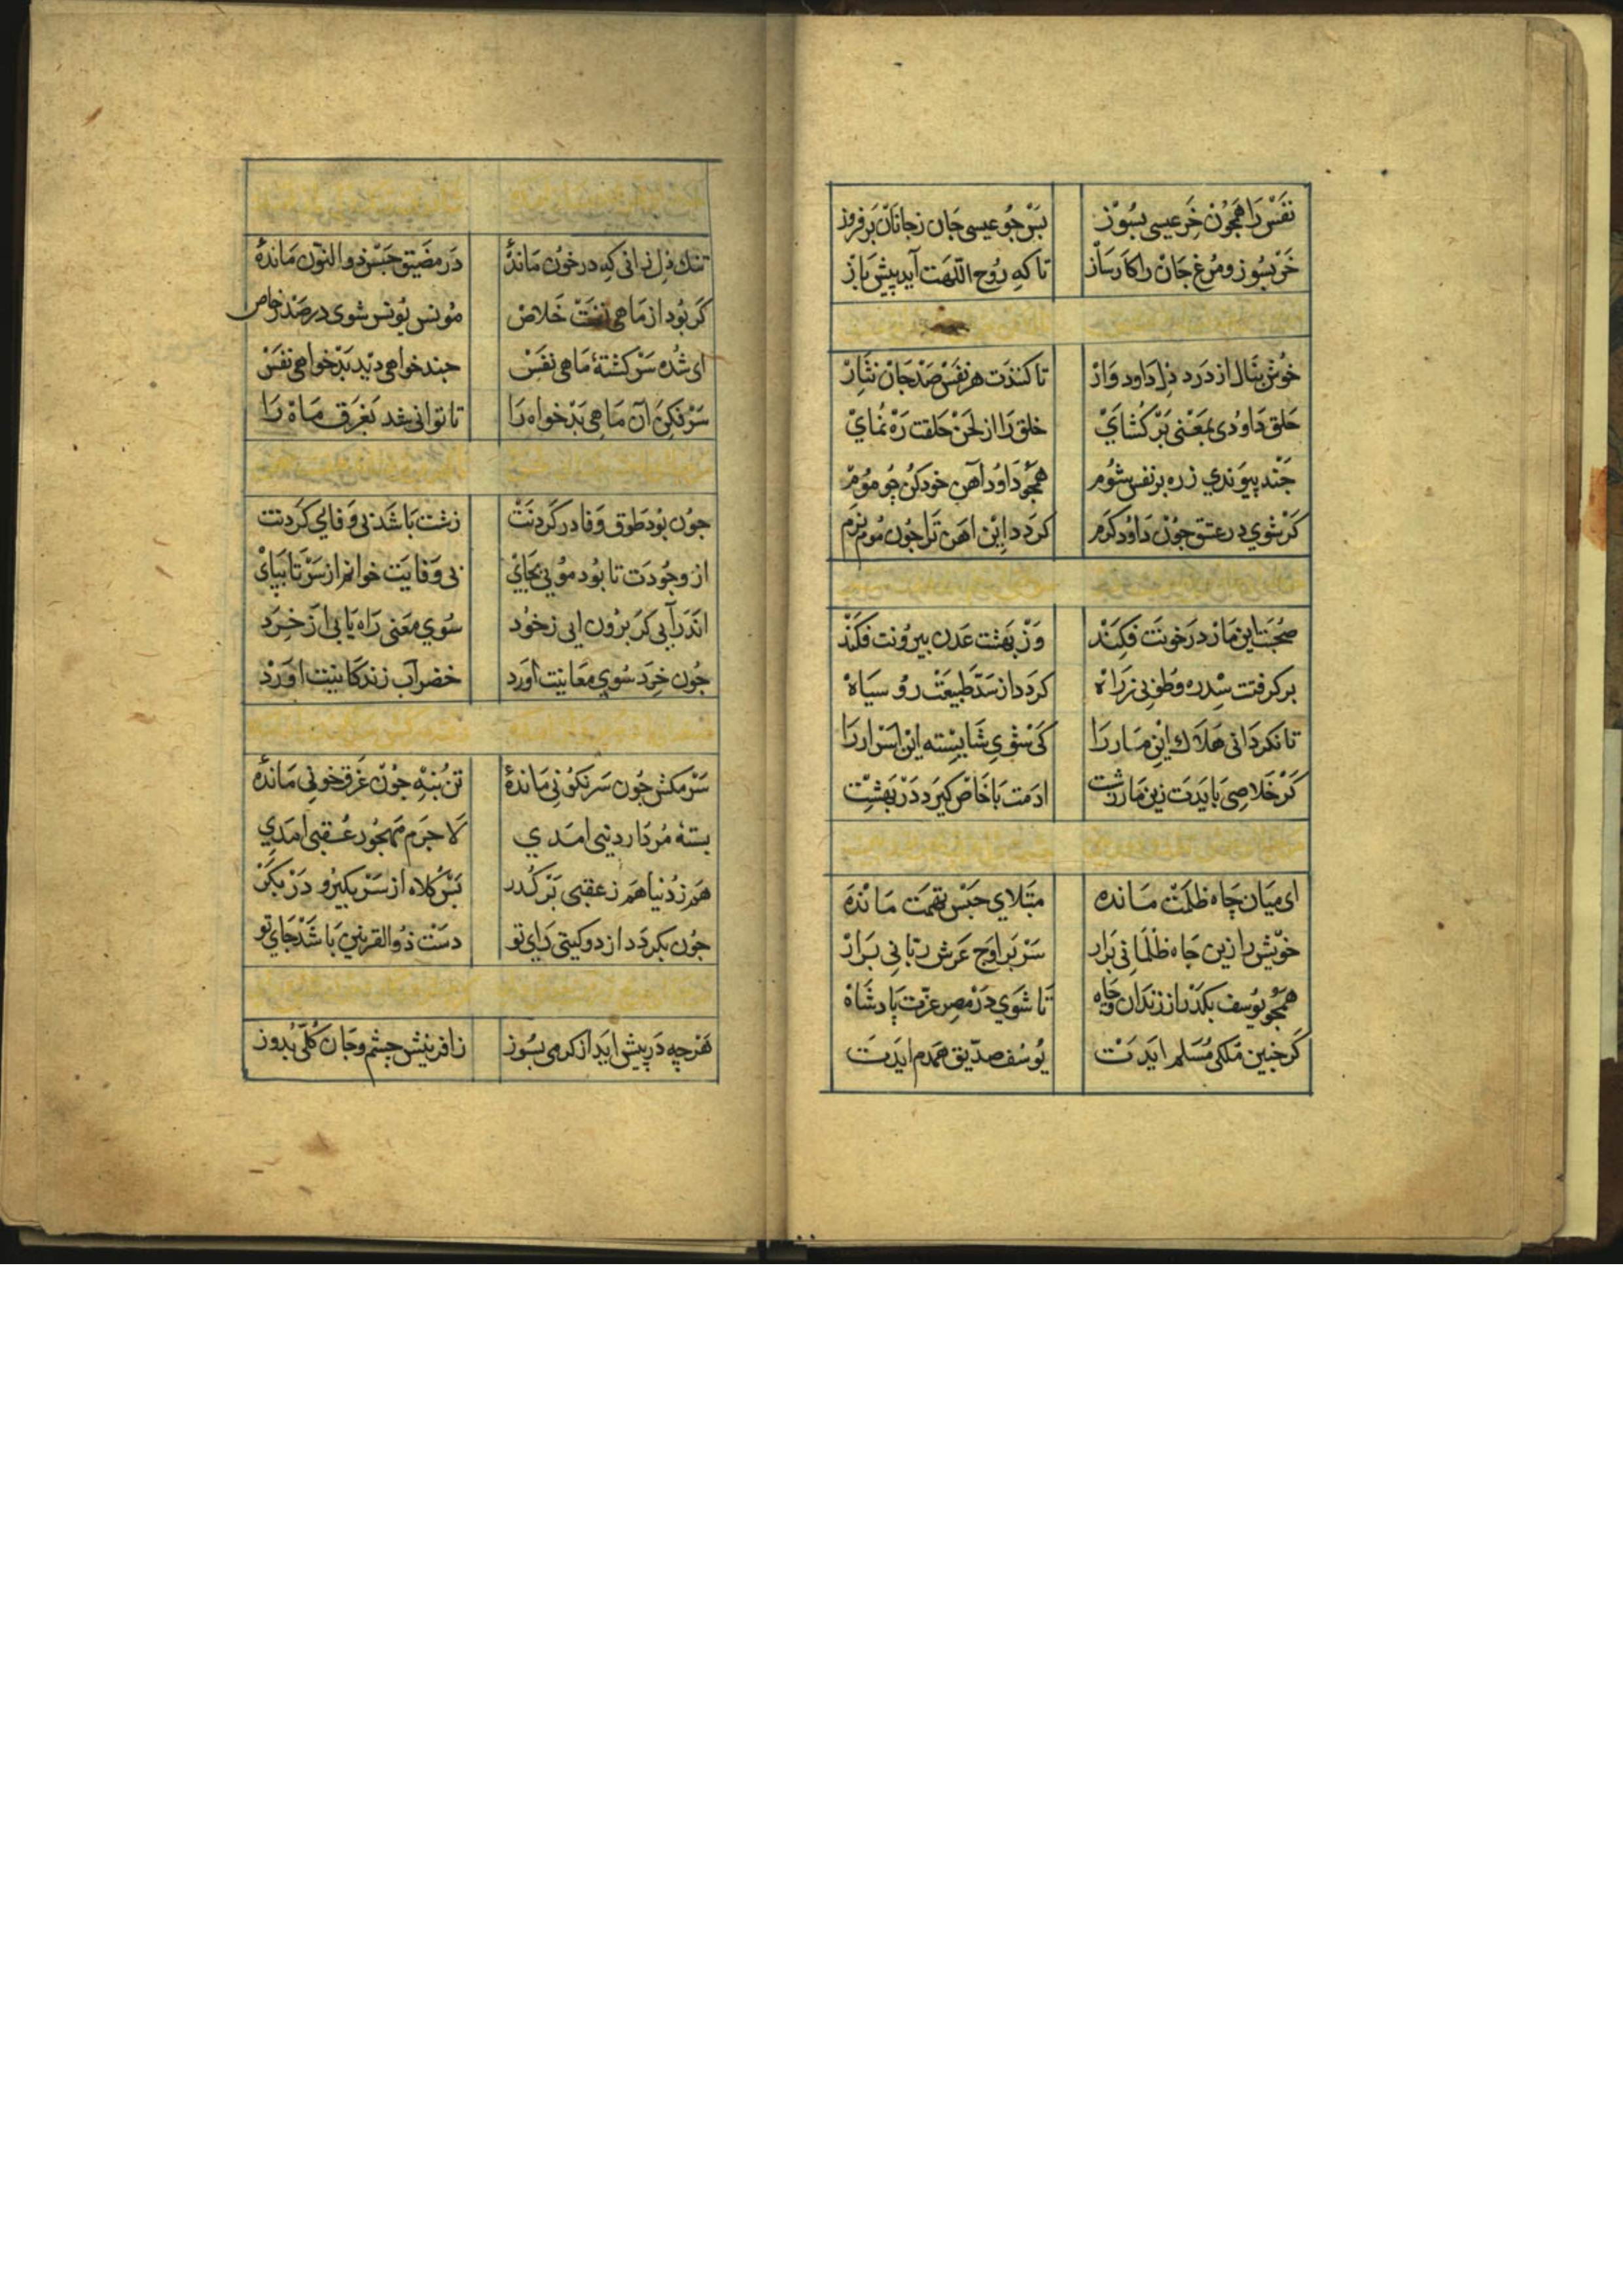 نفس را همچون خر عیسی بسوز پس جو عیسی جان زجانان بر فروز
خر بسوز و مرغ جان را کار ساز تا که روح اللهت آید پیش باز
خوش بنال از درد دل داود وار تا کنندت هر نفس صد جان نثار
حلق داودی بمعنی بر کشای خلق را از لحن حلقت ره نمای
جند پیوندی زره بر نفس شوم همجو داود آهن خود کن جو موم
کر شوی در عشق جون داود کرم کردد این اهن ترا جون موم نرم
صحبت این مار در خونت فکند وز بهشت عدن بیرونت فکند
بر کرفتت سدره و طوبی زراه کردد از سد طبیعت رو سیاه
تا نکردانی هلاك این مار را کی شوی شایسته این اسرار را
کر خلاصی بایدت زین مار زشت ادمت با خاص کیرد در بهشت
ای میان چاه ظلمت مانده مبتلای حبس تهمت مانده
خویش را زین جاه ظلمانی برار سر بر اوج عرش ربانی برار
همجو یوسف بکذر از زندان و چاه تا شوی در مصر عزت پادشاه
کر جنین ملکی مسلم ایدت یوسف صدیق همدم ایدت
تنك دل زانی که در خون ماندهٔ در مضیق حبس ذوالنون ماندهٔ
کر بود از ماهی نفست خلاص مونس یونس شوی در صدر خاص
ای شده سرکشتهٔ ماهی نفس جند خواهی دید بدخواهی نفس
سر نکن آن ماهی بدخواه را تا توانی شد بفرق ماه را
جون بود طوق وفا در کردنت زشت باشد بی وفایی کردنت
از وجودت تا بود مویی بجای بی وفایت خوانم از سر تا بپای
اندر آیی کر برون ایی زخود سوی معنی راه یابی از خرد
جون خرد سوی معانیت اورد خضر آب زندکانیت اورد
سر مکش جون سرنکونی ماندهٔ تن بنه جون غرق خونی ماندهٔ
بستهٔ مردار دنیی امدی لا جرم مهجور عقبی امدی
هم زدنیا هم زعقبی بر کذر پس کلاه از سر بکیر و در بکر
جون بکردد از دو کیتی رای تو دست ذوالقرنین باشد جای تو
هرچه در پیش اید از کرمی بسوز زافرینش جشم و جان کلی بدوز